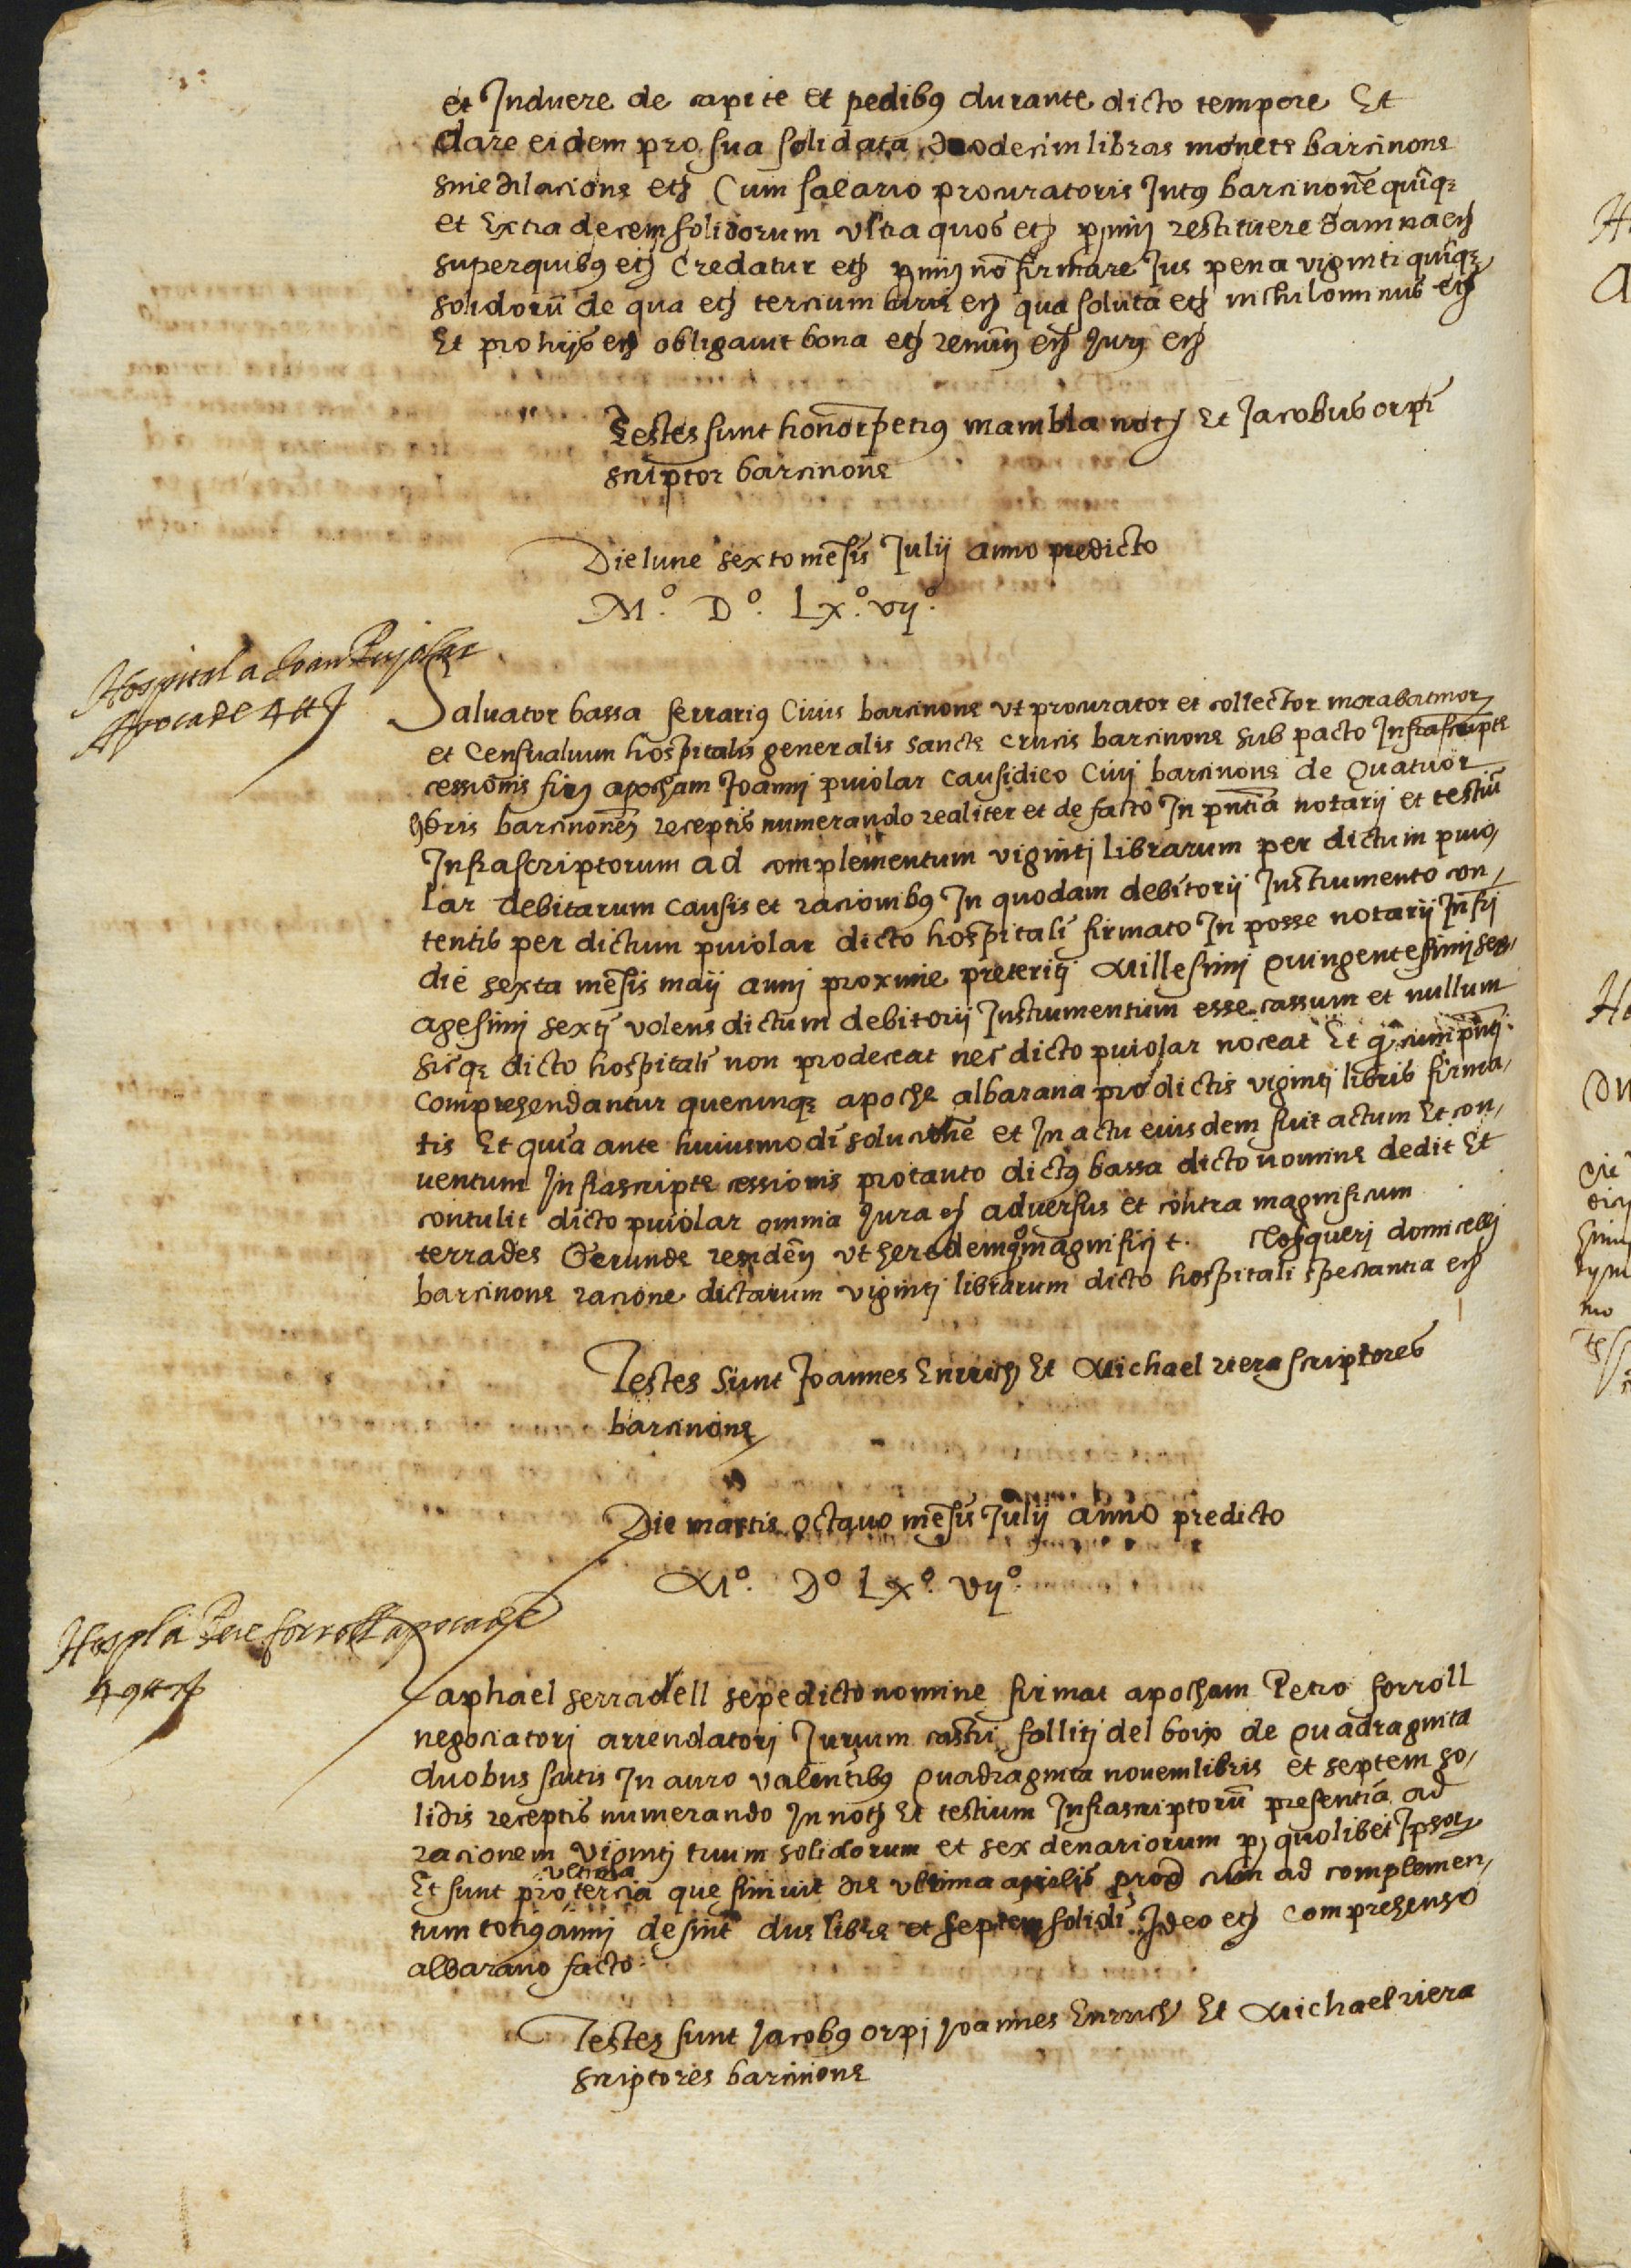 et Induere de capite et pedibꝰ durante dicto tempore Et
dare eidem pro sua solidata duodecim libras monete barcinone
sine dilacione etꝫ Cum salario procuratoris Intꝰ barcinone quīqꝫ
et Extra decem solidorum vltra quos etꝫ restituere damna etꝫ
superquibꝰ etꝫ Credatur etꝫ nō firmare Jus pena viginti quīqꝫ
solidorū de qua etꝫ tercium etꝫ qua soluta etꝫ nichilominus etꝫ
Et pro hijs etꝫ obligauit bona etꝫ etꝫ Jurꝫ etꝫ
Testes sunt honor petrꝰ mambla notꝫ Et Jacobus orpi
scriptor barcinone
Die lune sexto mēsis Julij anno predicto
M.º D.º Lx.º vij.º
Hospital a Joan Pujolar
Apoca de 4 ₶
Saluator bassa ferrariꝰ Ciuis barcinone vt procurator et collector morabatinorꝫ
et Censualium hospitalis generalis sancte Crucis barcinone sub pacto Infrascripte
cessionis firꝫ apocham Joannj puiolar causidico Ciuj barcinone de Quatuor
libris barcinoneꝫ receptis numerando realiter et de facto In pñtia notarij et testiū
Infrascriptorum ad complementum vigintj librarum per dictum puio,
lar debitarum causis et racionibꝰ In quodam debitorij Instrumento con,
tentis per dictum puiolar dicto hospitali firmato In posse notarij Infrj
die sexta mēsis maij annj proxime preteritj Millesimj Quingentesimj sex,
agesimj sextj volens dictum debitorij Instrumentum esse cassum et nullum
sicqꝫ dicto hospitali non prodeceat nec dicto puiolar noceat Et
Comprehendantur quecunqꝫ apoche albarana pro dictis vigintj libris firma,
tis Et quia ante huiusmodi solucionē et In actu eiusdem fuit actum Et con,
uentum Infrascripte cessionis protanto dictꝰ bassa dicto nomine dedit Et
contulit dicto puiolar omnia Jura etꝫ aduersus et contra magnificum
terrades Gerunde residēꝫ vt heredem magnificj t. domicellj
barcinone racione dictarum vigintj librarum dicto hospitali spectantia etꝫ
Testes sunt Joannes Enrrich Et Michael riera scriptores
barcinone
Die martis octauo mēsis Julij anno predicto
M.º D.º Lx.º vij.º
Hospl a Pere forroll apoca de
49 ₶ 7
Raphael serradell sepe dicto nomine firmat apocham Petro forroll
negociatorj arrendatorj Jurium castri follitj del boix de Quadraginta
duobus scutis In auro valentibꝰ Quadraginta nouem libris et septem so,
lidis receptis numerando In notꝫ Et testium Infrascriptorū presentia ad
racionem vigintj trium solidorum et sex denariorum pꝫ quolibet Ipsorꝫ
vltima
Et sunt pro tercia que finiuit die vltima aprilis prod cum ad complemen,
tum totiꝰ annj desint due libre et septem solidi Ideo etꝫ Comprehenso
albarano facto
Testes sunt Jacobꝰ orpj Joannes Enrrich Et Michael riera
scriptores barcinone